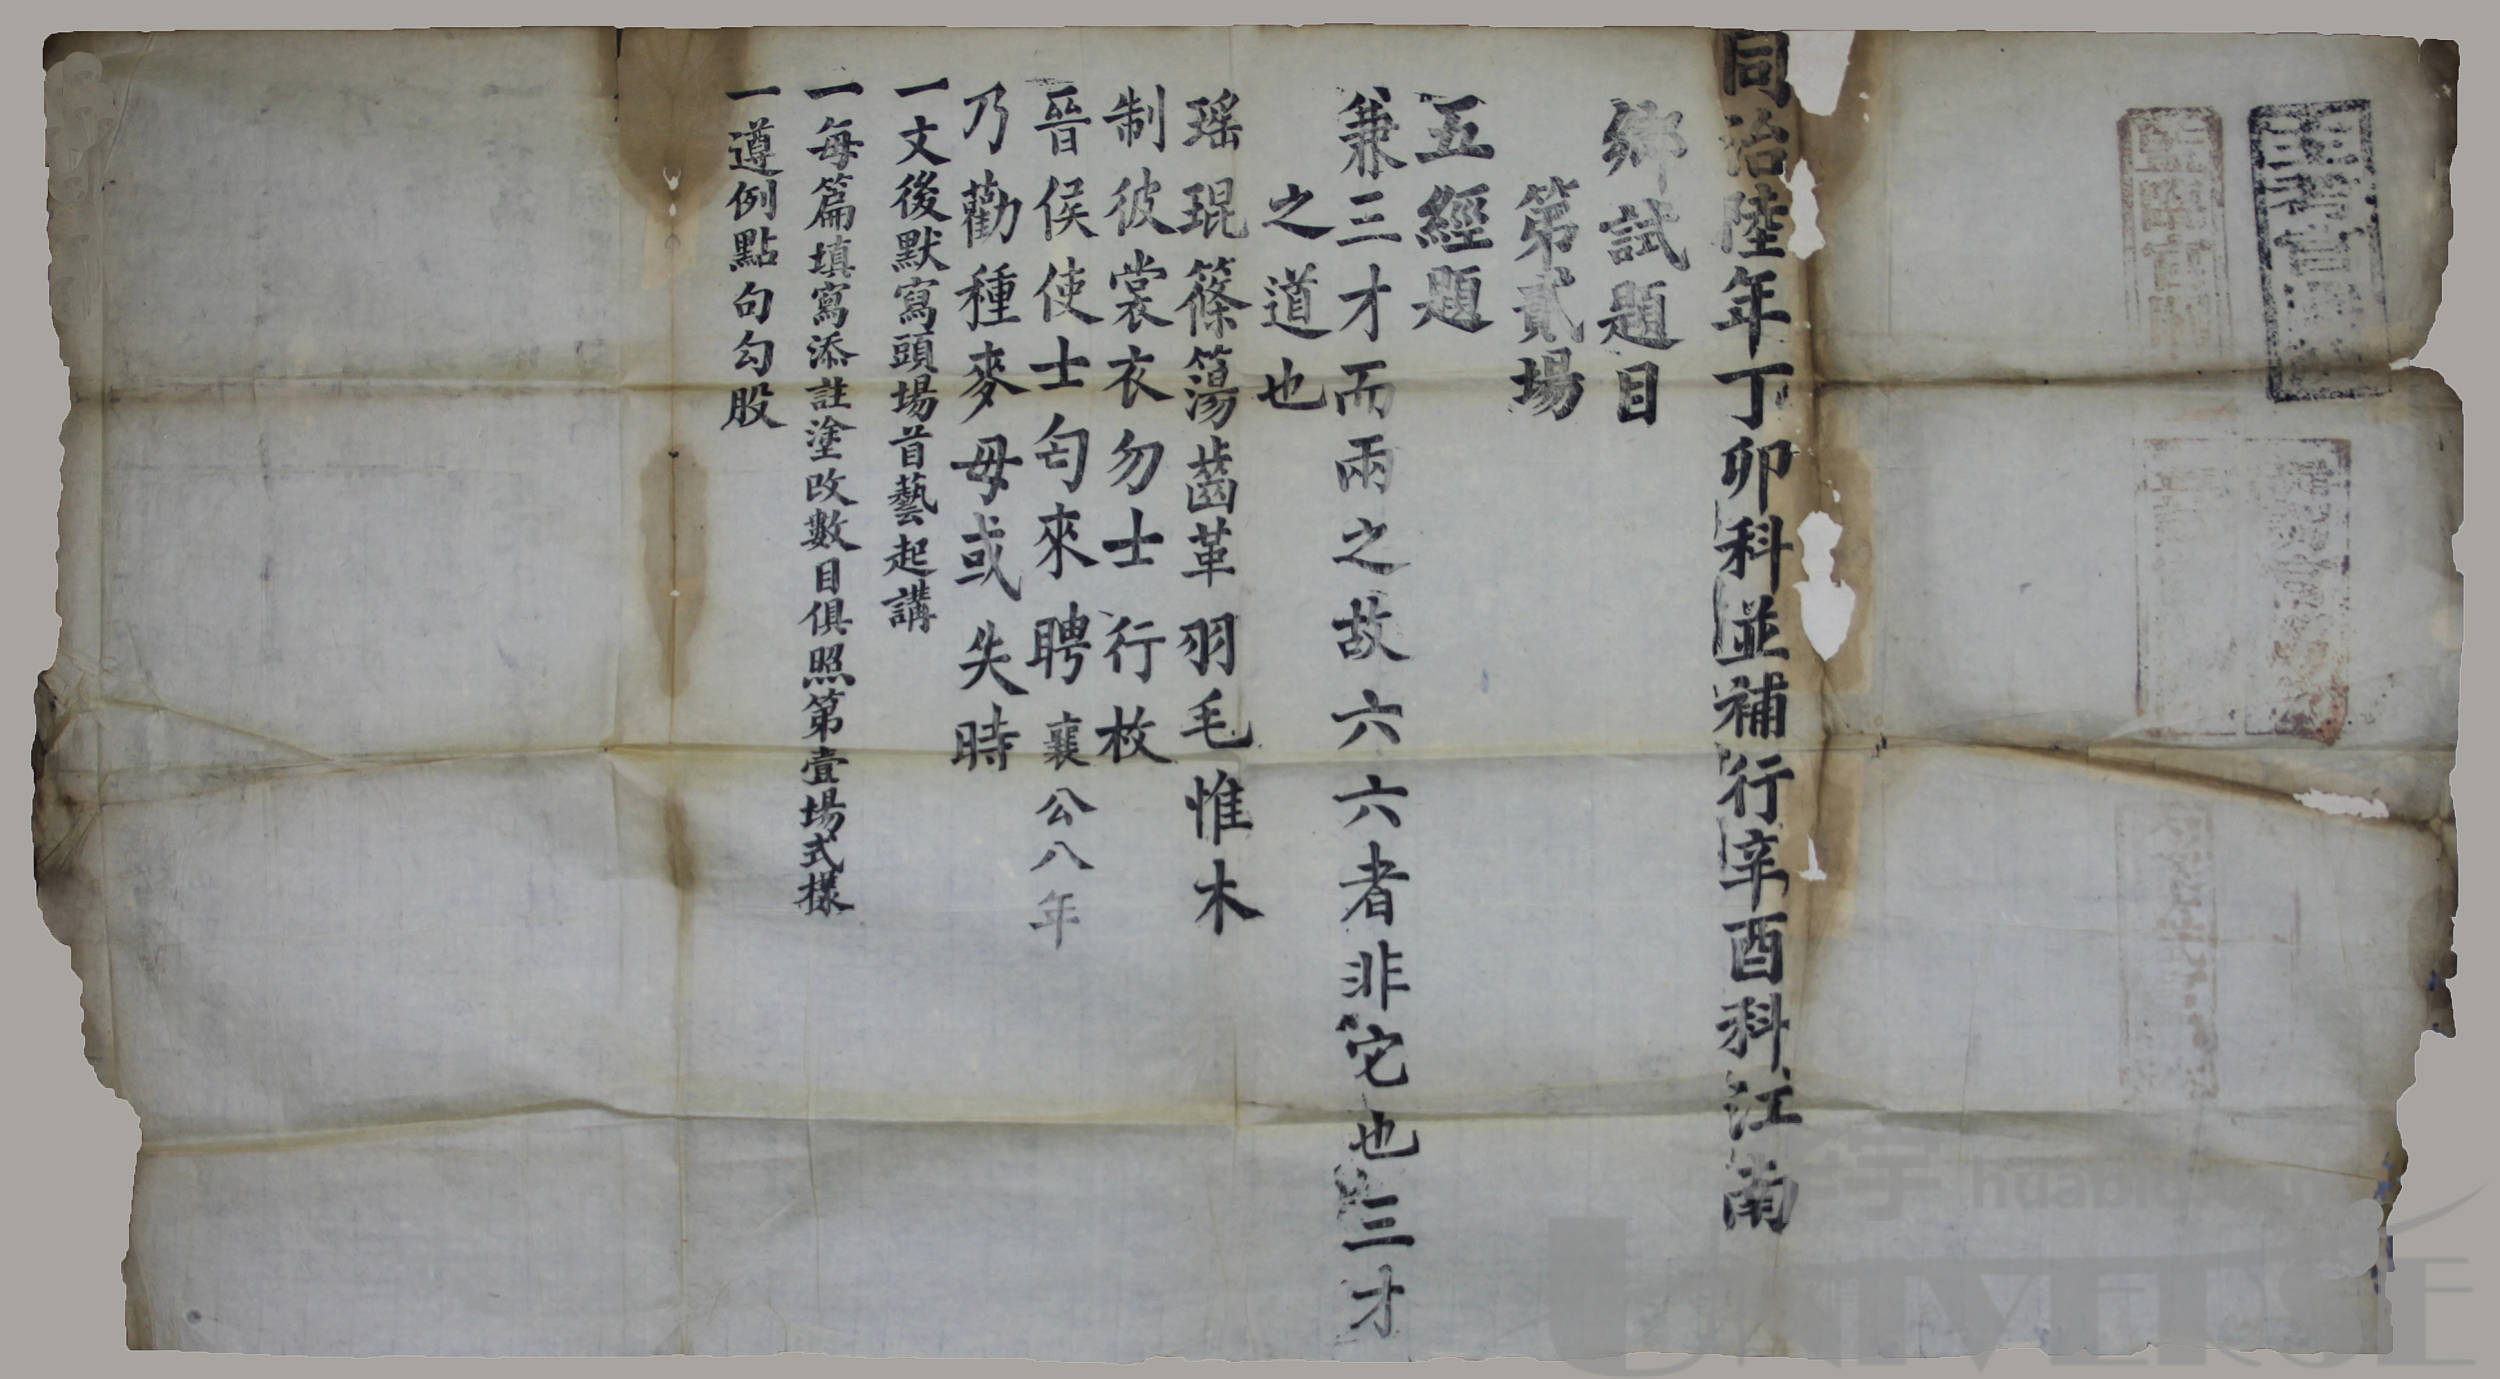 同治陸年丁卯科並補行辛酉科江南
鄉試題目
第貳場
五經題
兼三才而兩之故六六者非它也三才
之道也
瑤琨篠簜齒革羽毛惟木
制彼裳衣勿士行枚
晉侯使士匄來聘襄公八年
乃勸種麥毋或失時
一文後默寫頭場首藝起講
一每篇填寫添註塗改數目俱照第壹場式樣
一遵例點句勾股
huabid
UNIVERSE